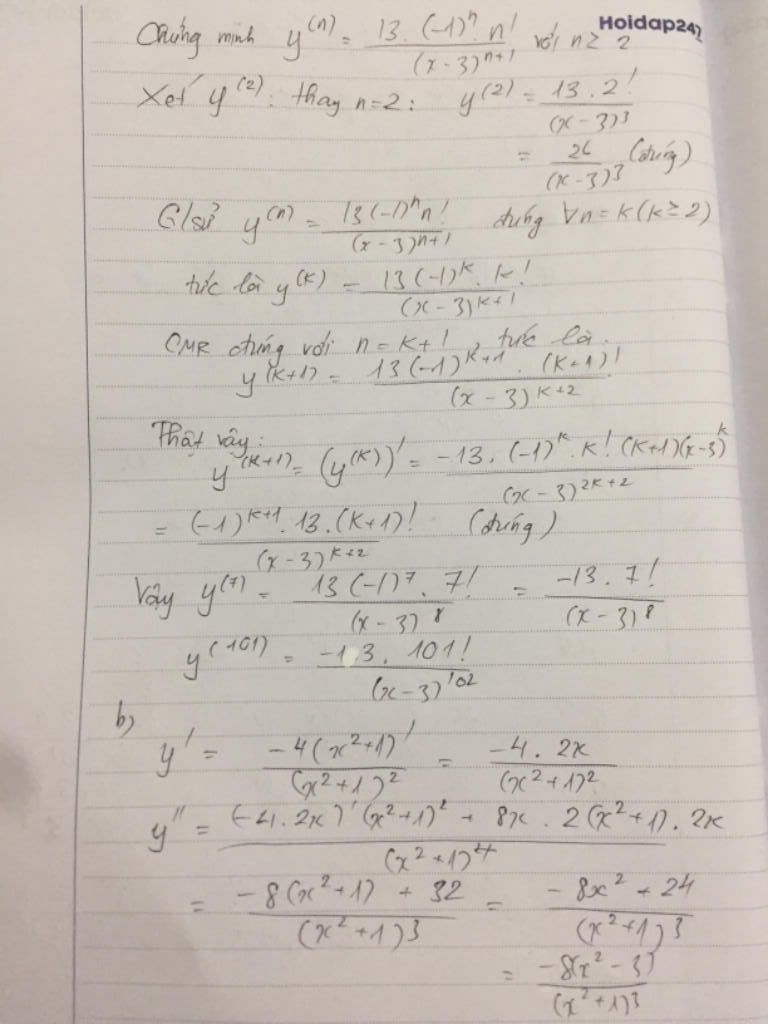 Hoidap247
Chứng minh y^(n) = 13.(-1)^n n! / (x-3)^(n+1) với n ≥ 2
Xét y^(2): thay n=2: y^(2) = 13.2! / (x-3)^3
= 26 / (x-3)^3 (đúng)
G/sử y^(n) = 13(-1)^n n! / (x-3)^(n+1) đúng ∀n = k (k ≥ 2)
tức là y^(k) = 13(-1)^k . k! / (x-3)^(k+1)
CMR đúng với n = k+1, tức là
y^(k+1) = 13(-1)^(k+1) . (k+1)! / (x-3)^(k+2)
Thật vậy:
y^(k+1) = (y^(k))' = -13.(-1)^k . k! (k+1)(x-3)^k / (x-3)^(2k+2)
= (-1)^(k+1) . 13.(k+1)! / (x-3)^(k+2) (đúng)
Vậy y^(7) = 13(-1)^7 . 7! / (x-3)^8 = -13.7! / (x-3)^8
y^(101) = -13. 101! / (x-3)^102
b)
y' = -4(x^2+1)' / (x^2+1)^2 = -4.2x / (x^2+1)^2
y'' = (-4.2x)'(x^2+1)^2 + 8x . 2(x^2+1). 2x / (x^2+1)^4
= -8(x^2+1) + 32 / (x^2+1)^3 = -8x^2 + 24 / (x^2+1)^3
= -8(x^2-3) / (x^2+1)^3